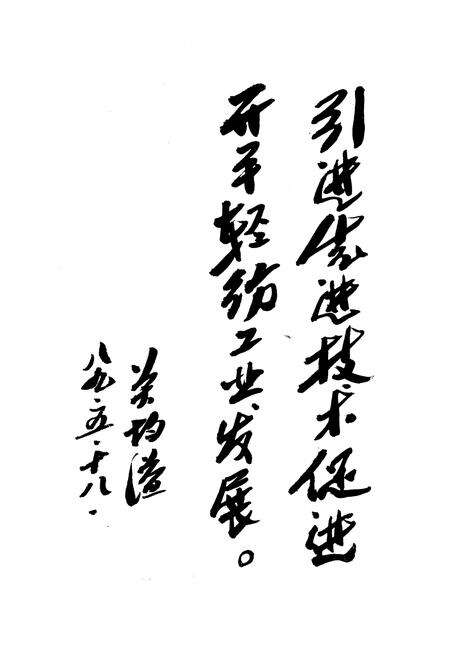 引进先进技术促进
开平轻纺工业发展。
八九·五·十八·